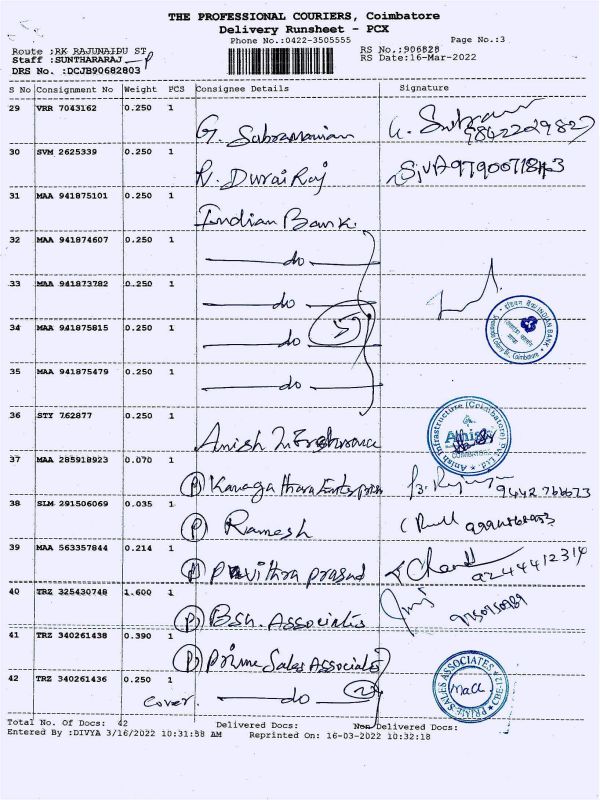 THE PROFESSIONAL COURIERS, Coimbatore
Delivery Runsheet - PCX
Phone No.:0422-3505555
Page No.:3
Route :RK RAJUNAIDU ST
Staff :SUNTHARARAJ P
DRS No. :DCJB90682803
RS No.:906828
RS Date:16-Mar-2022
S No Consignment No Weight PCS Consignee Details Signature
29 VRR 7043162 0.250 1
G. Subramanian
9842229827
30 SVM 2625339 0.250 1
R. Durai Raj
31 MAA 941875101 0.250 1
Indian Bank.
32 MAA 941874607 0.250 1
do
33 MAA 941873782 0.250 1
do
34 MAA 941875815 0.250 1
do
35 MAA 941875479 0.250 1
do
36 STY 762877 0.250 1
Anish
37 MAA 285918923 0.070 1
(P)
38 SLM 291506069 0.035 1
(P) Ramesh
39 MAA 563357844 0.214 1
(P) Pavithra prasad
9244412314
40 TRZ 325430748 1.600 1
(P) Bsh. Associates
41 TRZ 340261438 0.390 1
(P) Prime Sales Associates
42 TRZ 340261436 0.250 1
cover. do 2
Total No. Of Docs: 42 Delivered Docs: Non Delivered Docs:
Entered By :DIVYA 3/16/2022 10:31:58 AM Reprinted On: 16-03-2022 10:32:18